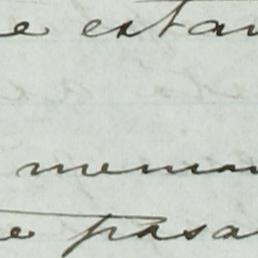 e estan
memor
e pasa